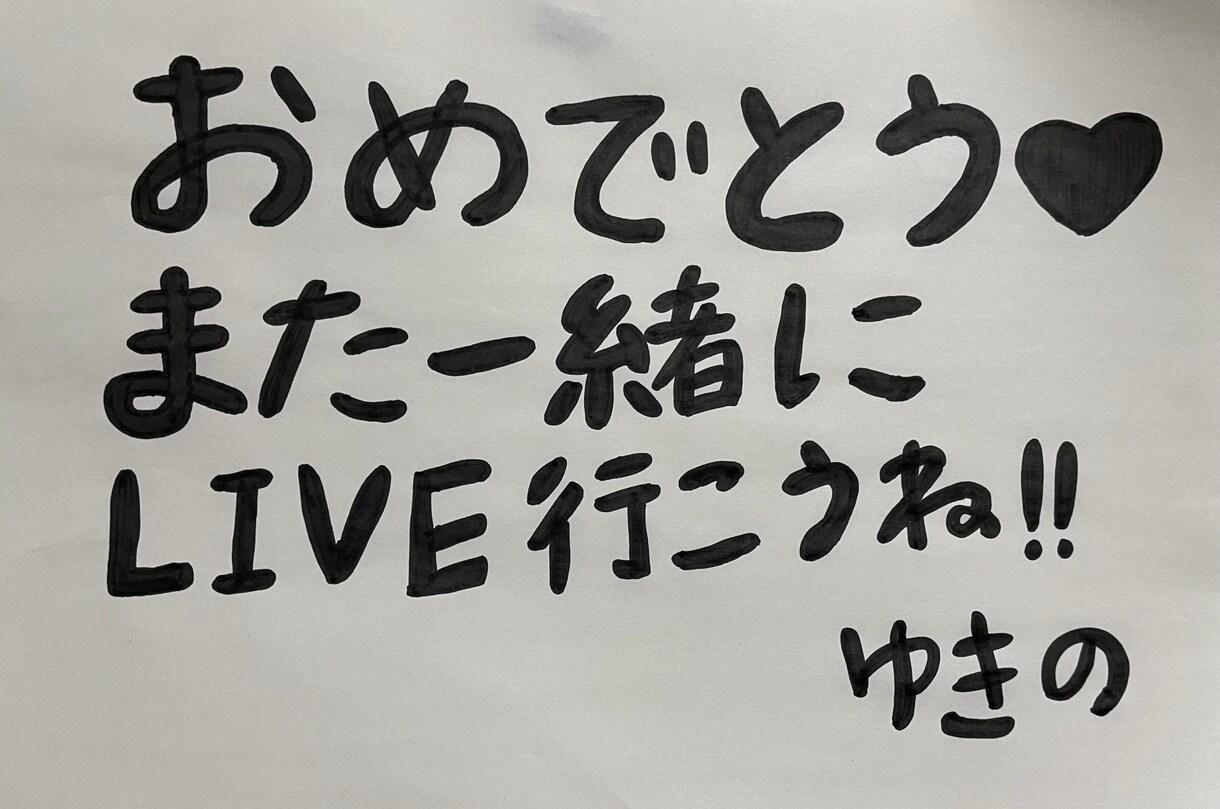 おめでとう♥
また一緒に
LIVE行こうね!!
ゆきの